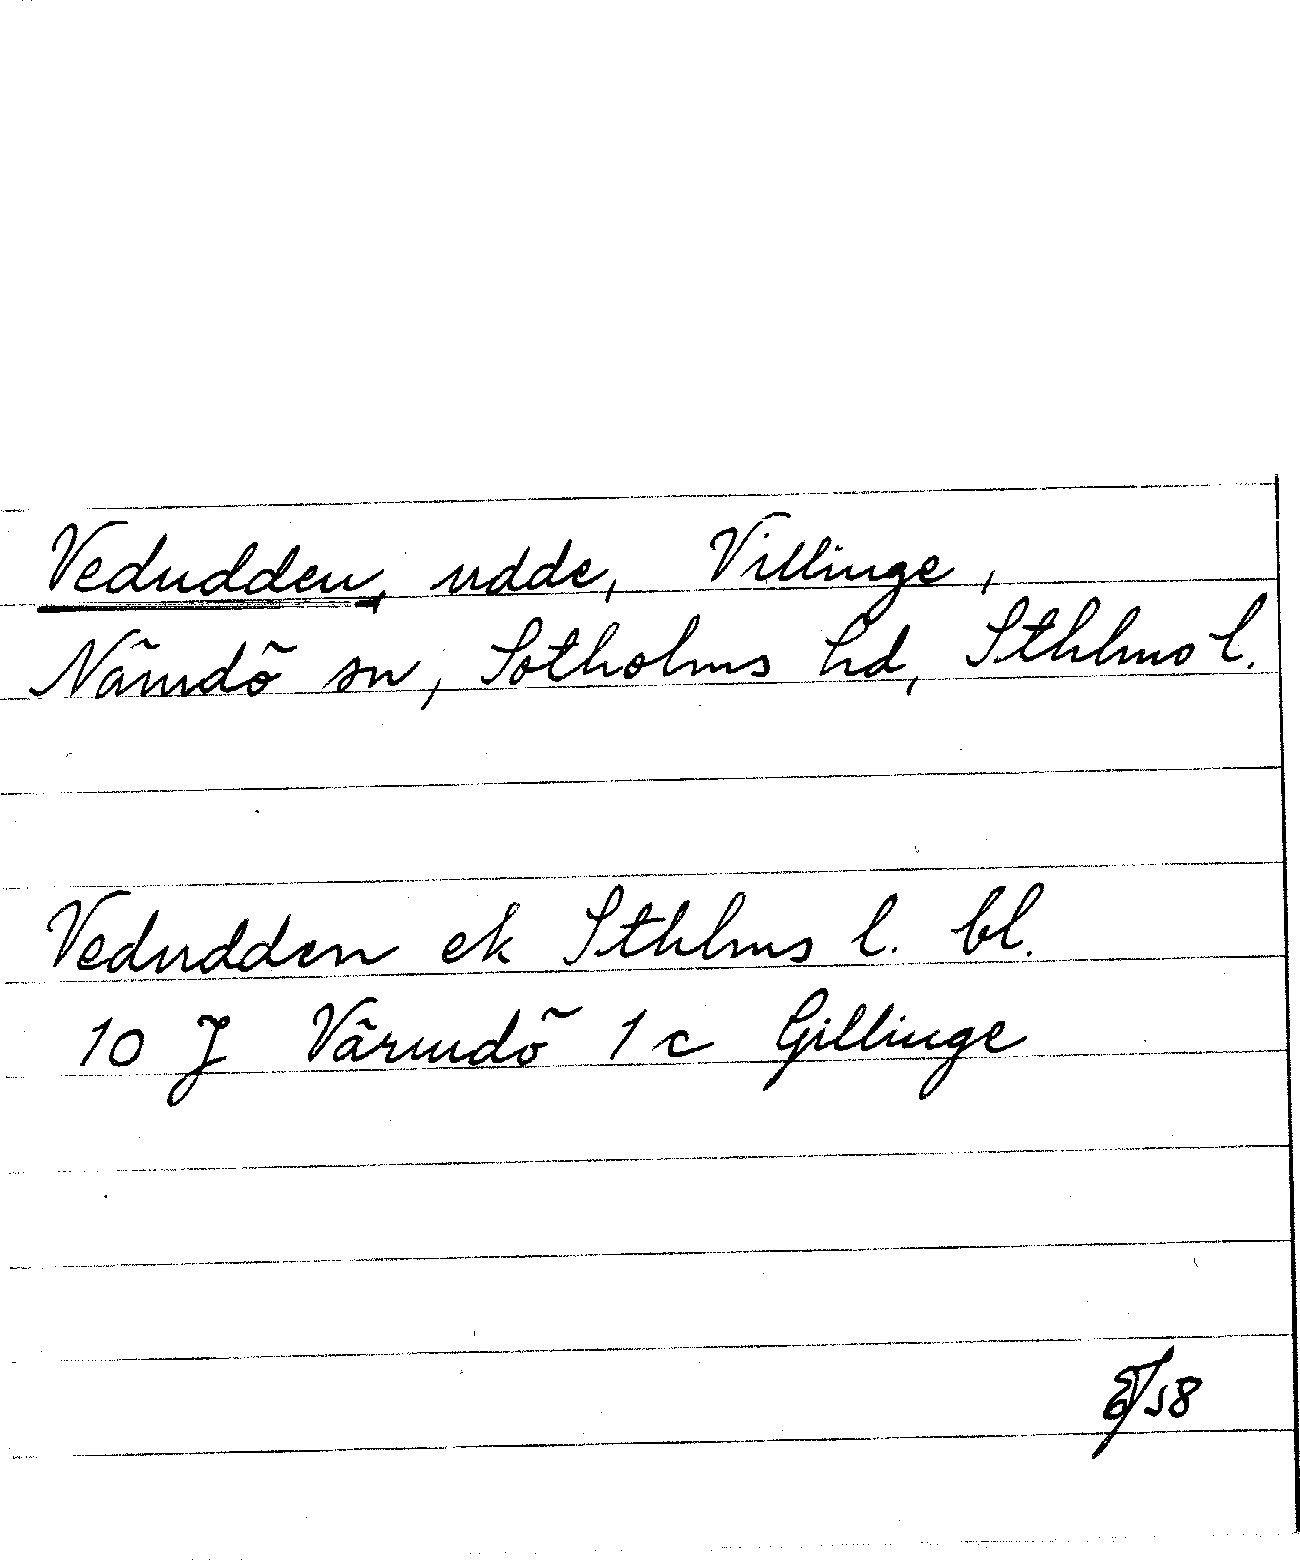 Vedudden, udde, Villinge,
Nämdö sn, Sotholms hd, Sthlms l.
Vedudden ek Sthlms l. bl.
10 J Värmdö 1 c Gillinge